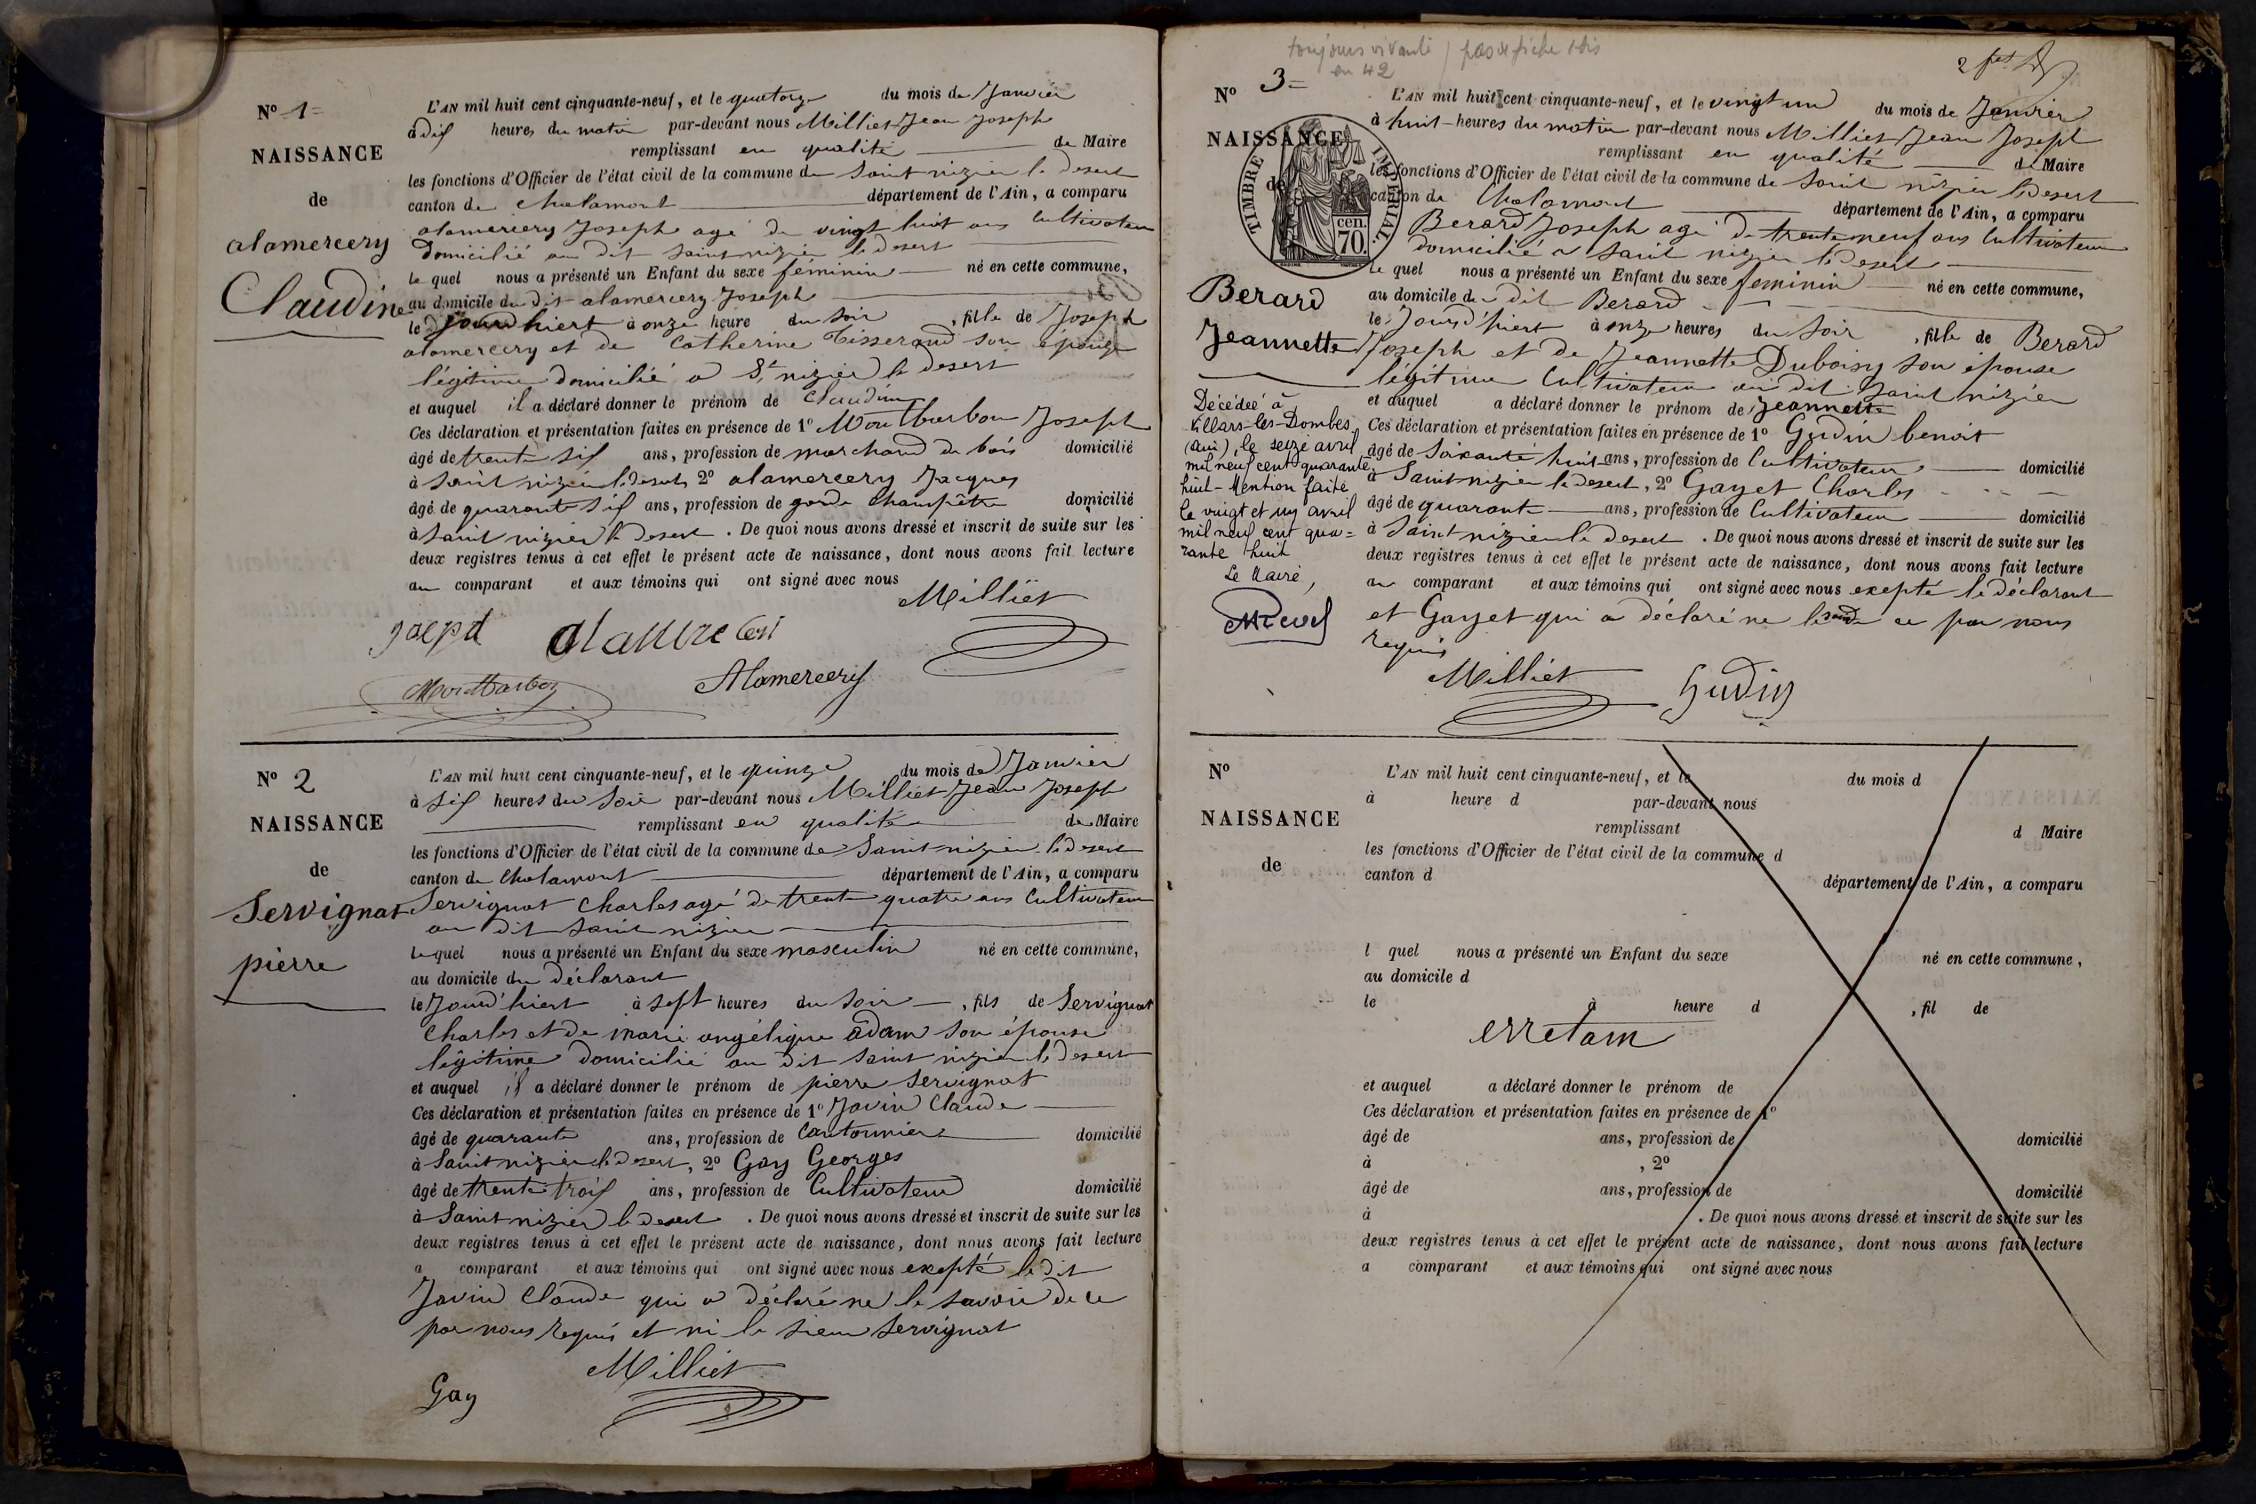 N° 1
NAISSANCE
de
alamercery
Claudine
L'AN mil huit cent cinquante-neuf, et le quatorze du mois de Janvier
à dix heures du matin par-devant nous Milliet Jean Joseph
remplissant en qualité de Maire
les fonctions d'Officier de l'état civil de la commune de Saint nizier le Desert
canton de Chalamont département de l'Ain, a comparu
alamercery Joseph agé de vingt huit ans Cultivateur
Domicilié au dit Saint nizier le desert
le quel nous a présenté un Enfant du sexe féminin né en cette commune,
au domicile du dit alamercery Joseph
le Jourd'hiert à onze heure du soir, fille de Joseph
alamercery et de Catherine Tisserand son épouse
légitime domicilié a St nizier le desert
et auquel il a déclaré donner le prénom de Claudine
Ces déclaration et présentation faites en présence de 1° Montbarbon Joseph
âgé de trente six ans, profession de marchand de bois domicilié
à Saint nizier le desert, 2° alamercery Jacques
âgé de quarante six ans, profession de garde champêtre domicilié
à Saint nizier le desert. De quoi nous avons dressé et inscrit de suite sur les
deux registres tenus à cet effet le présent acte de naissance, dont nous avons fait lecture
au comparant et aux témoins qui ont signé avec nous
Milliet
Joseph
Montbarbon Alamercery
N° 2
NAISSANCE
de
Servignat
pierre
L'AN mil huit cent cinquante-neuf, et le quinze du mois de Janvier
à six heures du Soir par-devant nous Milliet Jean Joseph
remplissant en qualité de Maire
les fonctions d'Officier de l'état civil de la commune de Saint nizier le desert
canton de Chalamont département de l'Ain, a comparu
Servignat Charles agé de trente quatre ans Cultivateur
au dit Saint nizier
le quel nous a présenté un Enfant du sexe masculin né en cette commune,
au domicile du déclarant
le Jourd'hiert à sept heures du soir, fils de Servignat
Charles et de marie angélique adam son épouse
légitime domicilié au dit Saint nizier le desert
et auquel il a déclaré donner le prénom de pierre Servignat
Ces déclaration et présentation faites en présence de 1° Javin Claude
âgé de quarante ans, profession de Cantonnier domicilié
à Saint nizier le desert, 2° Gay Georges
âgé de trente trois ans, profession de Cultivateur domicilié
à Saint nizier le desert. De quoi nous avons dressé et inscrit de suite sur les
deux registres tenus à cet effet le présent acte de naissance, dont nous avons fait lecture
a comparant et aux témoins qui ont signé avec nous exepté le dit
Javin Claude qui a déclaré ne le savoir de ce
par nous requis et ni le sieur Servignat
Milliet
Gay
toujours vivante / pas de fiche
en 42
N° 3
NAISSANCE
de
TIMBRE IMPERIAL.
cen.
70.
Berard
Jeannette
Décédée à
Villars-les-Dombes
(Ain), le seize avril
mil neuf cent quarante
huit - Mention faite
le vingt et un avril
mil neuf cent qua=
rante huit
Le Maire,
L'AN mil huit cent cinquante-neuf, et le vingt un du mois de Janvier
à huit heures du matin par-devant nous Milliet Jean Joseph
remplissant en qualité de Maire
les fonctions d'Officier de l'état civil de la commune de Saint nizier le desert
canton de Chalamont département de l'Ain, a comparu
Berard Joseph agé de trente neuf ans Cultivateur
domicilié a Saint nizier le desert
le quel nous a présenté un Enfant du sexe feminin né en cette commune,
au domicile du dit Berard
le Jourd'hiert à onze heures du soir, fille de Berard
Joseph et de Jeannette Duboisy son épouse
légitime Cultivateur au dit Saint nizier
et auquel a déclaré donner le prénom de Jeannette
Ces déclaration et présentation faites en présence de 1° Gudin benoit
âgé de soixante huit ans, profession de Cultivateur domicilié
à Saint nizier le desert, 2° Gayet Charles
âgé de quarante ans, profession de Cultivateur domicilié
à Saint nizier le desert. De quoi nous avons dressé et inscrit de suite sur les
deux registres tenus à cet effet le présent acte de naissance, dont nous avons fait lecture
au comparant et aux témoins qui ont signé avec nous exepté le déclarant
et Gayet qui a déclaré ne le de ce par nous
requis
Milliet Gudin
N°
NAISSANCE
de
L'AN mil huit cent cinquante-neuf, et le du mois d
à heure d par-devant nous
remplissant d Maire
les fonctions d'Officier de l'état civil de la commune d
canton d département de l'Ain, a comparu
l quel nous a présenté un Enfant du sexe né en cette commune,
au domicile d
le à heure d, fil de
erretam
et auquel a déclaré donner le prénom de
Ces déclaration et présentation faites en présence de 1°
âgé de ans, profession de domicilié
à, 2°
âgé de ans, profession de domicilié
à. De quoi nous avons dressé et inscrit de suite sur les
deux registres tenus à cet effet le présent acte de naissance, dont nous avons fait lecture
a comparant et aux témoins qui ont signé avec nous